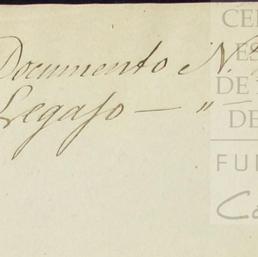 Documento N.º
Legajo — „ —
CE
ES
DE
DE
FU
Ca